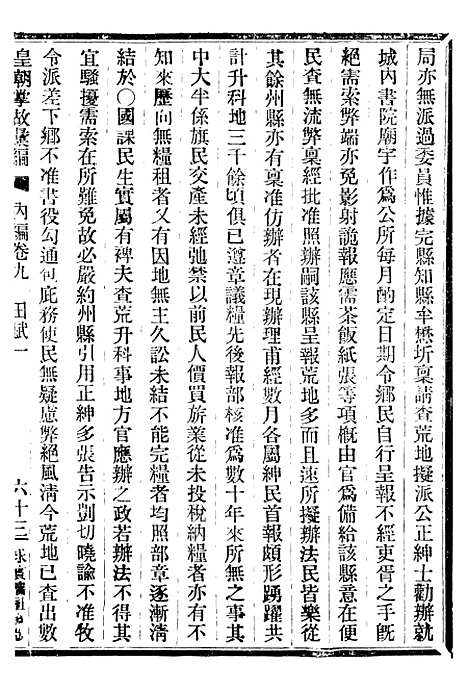 局亦無派過委員惟據完縣知縣牟懋圻稟請查荒地擬派公正紳士勸辦就
城內書院廟宇作爲公所每月酌定日期令鄉民自行呈報不經吏胥之手旣
絕需索弊端亦免影射詭報應需茶飯紙張等項槪由官爲備給該縣意在便
民查無流弊稟經批准照辦嗣該縣呈報荒地多而且速所擬辦法民皆樂從
其餘州縣亦有稟准仿辦者在現辦理甫經數月各屬紳民首報頗形踴躍共
計升科地三千餘頃俱已遵章議糧先後報部核准爲數十年來所無之事其
中大半係旗民交產未經弛禁以前民人價買旂業從未投稅納糧者亦有不
知來歷向無糧租者又有因地無主久訟未結不能完糧者均照部章逐漸淸
結於〇國課民生實屬有裨夫查荒升科事地方官應辦之政若辦法不得其
宜騷擾需索在所難免故必嚴約州縣引用正紳多張告示剴切曉諭不准牧
令派差下鄉不准書役勾通包庇務使民無疑慮弊絕風淸今荒地已查出數
皇朝掌故彙編 內編卷九 田賦一 六十三